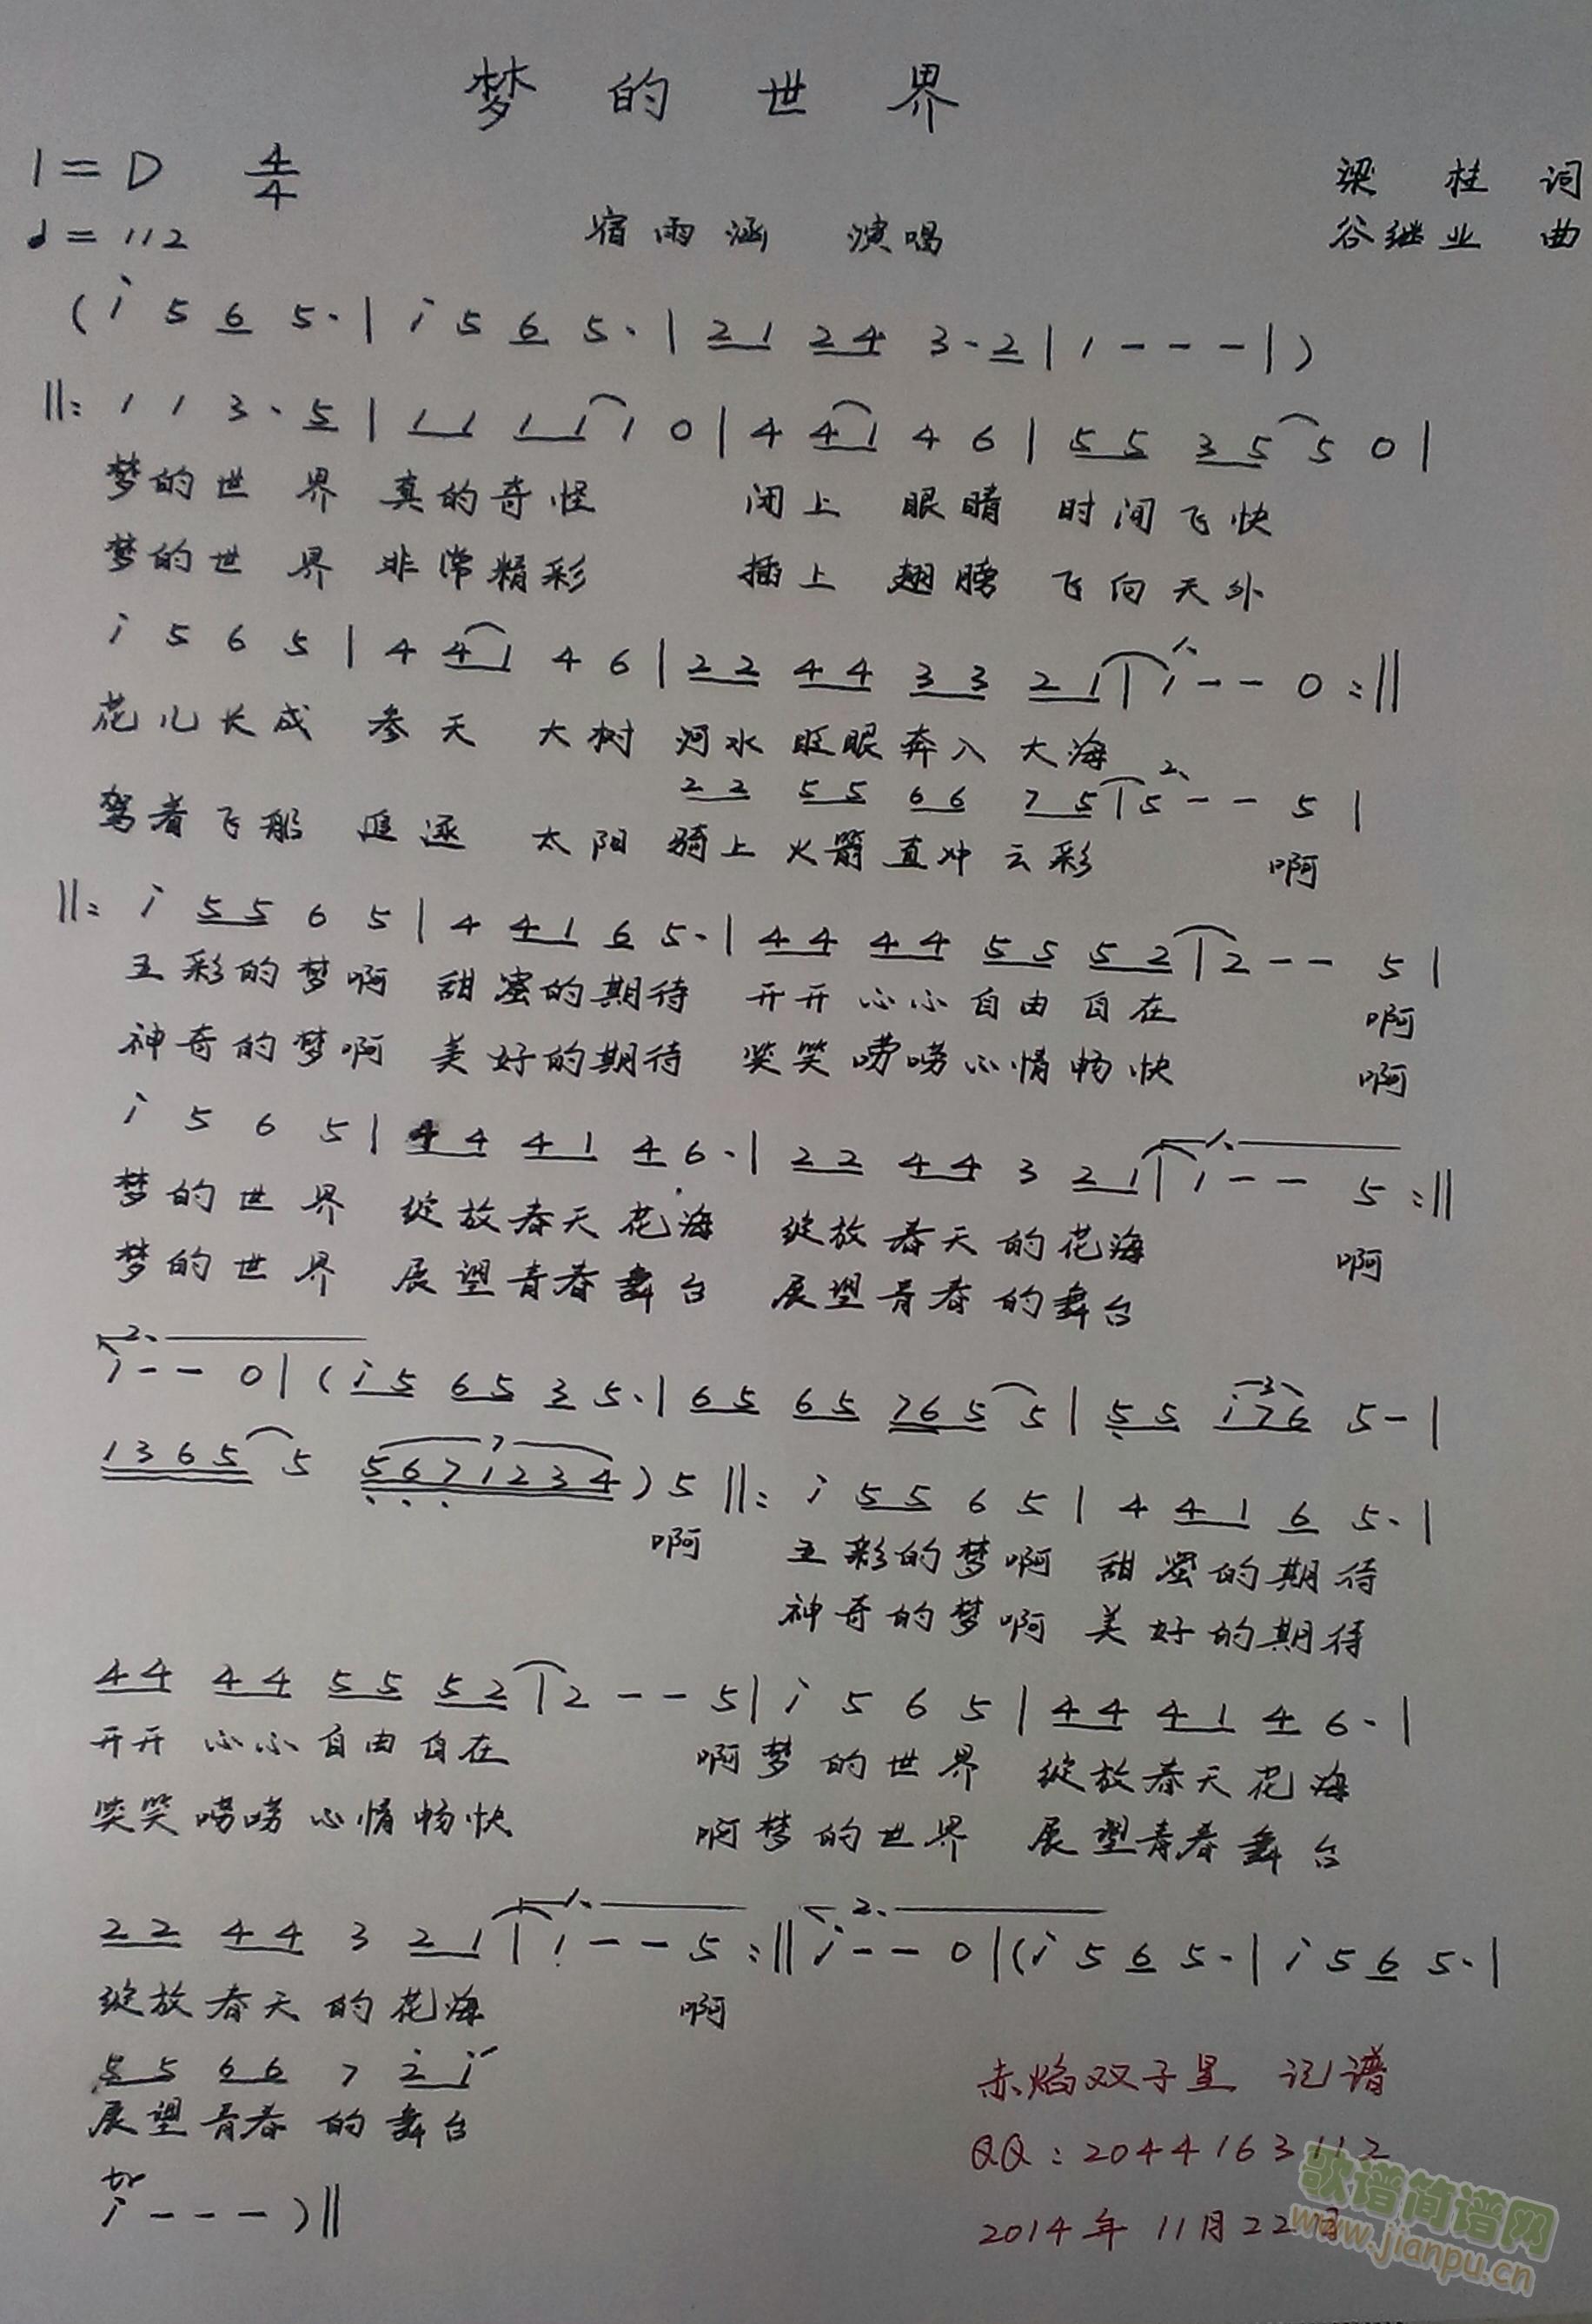 梦的世界
1=D 4/4
梁桂 词
♩=112
宿雨涵 演唱
谷继业 曲
(i 5 6 5·| i 5 6 5·| 2 1 2 4 3·2| 1 - - - |)
‖: 1 1 3·5| 1 1 1 1 1 0| 4 4 1 4 6| 5 5 3 5 5 0|
梦的世界 真的奇怪 闭上 眼睛 时间飞快
梦的世界 非常精彩 插上 翅膀 飞向天外
i 5 6 5| 4 4 1 4 6| 2 2 4 4 3 3 2 1| 1. 1 - - 0 :‖
花儿长成 参天 大树 河水 眨眼奔入 大海
2 2 5 5 6 6 7 5| 2. 5 - - 5 |
驾着飞船 追逐 太阳 骑上火箭直冲云彩 啊
‖: i 5 5 6 5| 4 4 1 6 5·| 4 4 4 4 5 5 5 2| 2 - - 5|
五彩的梦啊 甜蜜的期待 开开心心自由自在 啊
神奇的梦啊 美好的期待 笑笑唠唠心情畅快 啊
i 5 6 5| 4 4 4 1 4 6·| 2 2 4 4 3 2 1| 1. 1 - - 5 :‖
梦的世界 绽放春天花海 绽放春天的花海 啊
梦的世界 展望青春舞台 展望青春的舞台
2. i - - 0| (i 5 6 5 3 5·| 6 5 6 5 7 6 5 5| 5 5 i 7 6 5 -|
1 3 6 5 5 5 6 7 1 2 3 4) 5 ‖: i 5 5 6 5| 4 4 1 6 5·|
啊 五彩的梦啊 甜蜜的期待
神奇的梦啊 美好的期待
4 4 4 4 5 5 5 2| 2 - - 5| i 5 6 5| 4 4 4 1 4 6·|
开开心心自由自在 啊梦的世界 绽放春天花海
笑笑唠唠心情畅快 啊梦的世界 展望青春舞台
2 2 4 4 3 2 1| 1. 1 - - 5 :‖ 2. i - - 0| (i 5 6 5·| i 5 6 5·|
绽放春天的花海 啊
5 5 6 6 7 2 i
展望青春的舞台
tr i - - - )‖
赤焰双子星 记谱
QQ:2044163112
2014年11月22日
歌谱简谱网
www.jianpu.cn